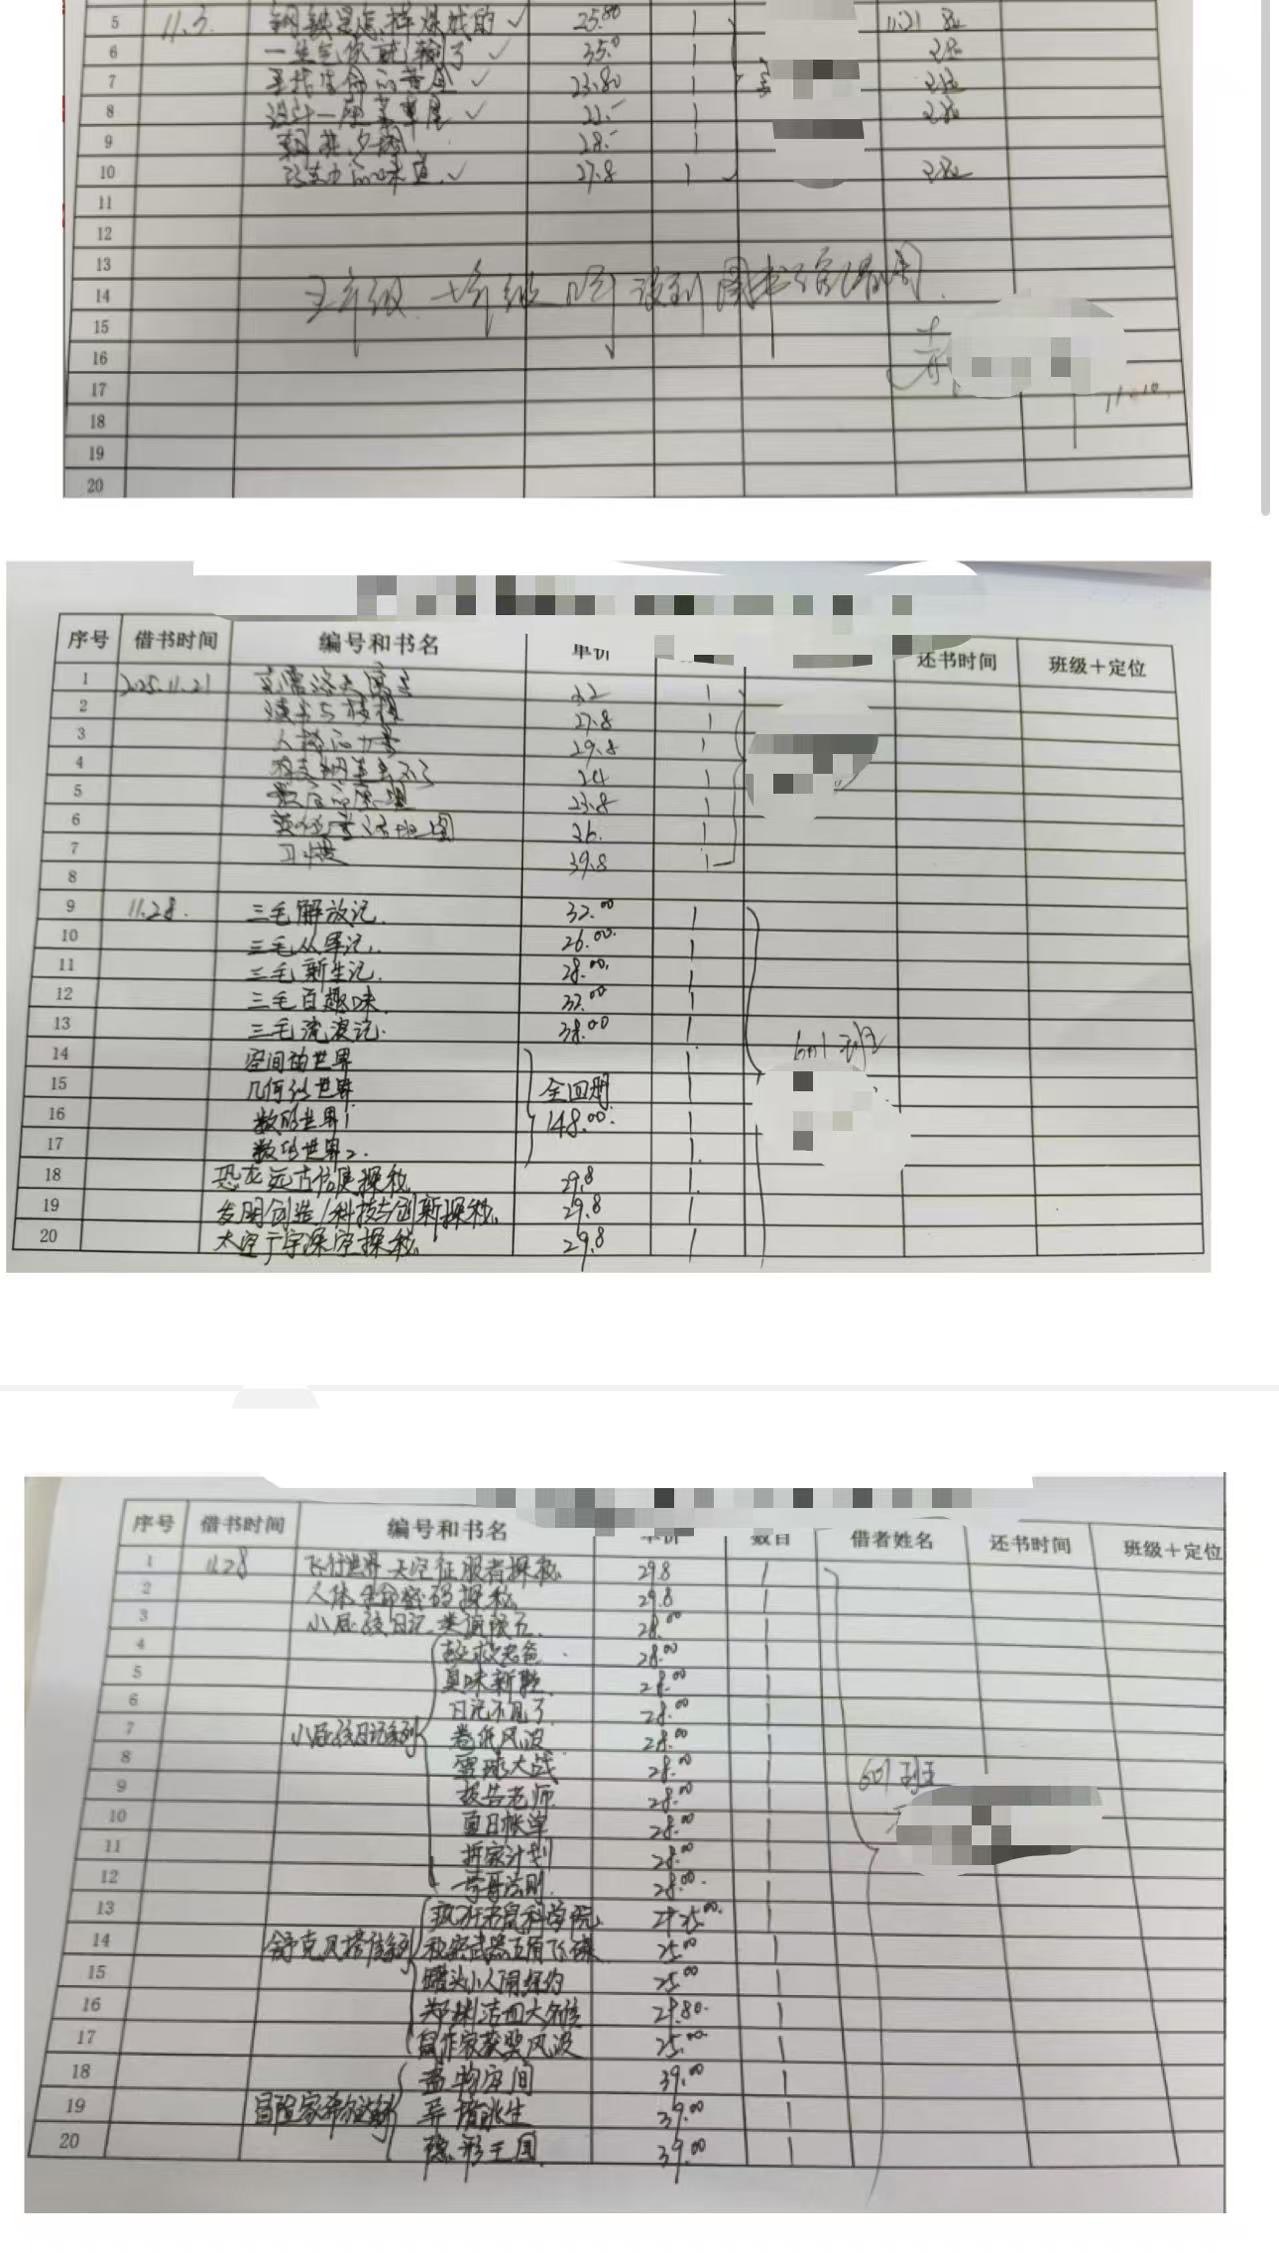 5 11.3. 钢铁是怎样炼成的 ✓ 25.80 1 11.21
6 一生气你就输了 ✓ 35.0 1
7 ✓ 23.80 1
8 设计一座 ✓ 22.- 1
9 朝花夕拾 28.- 1
10 的味道 ✓ 27.8 1
11
12
13
14 五年级 六年级 可 到图书馆借阅
15
16
17 11.10.
18
19
20
序号 借书时间 编号和书名 单价 还书时间 班级+定位
1 2025.11.21 22 1
2 读书与 27.8 1
3 人格的力量 29.8 1
4 24 1
5 23.8 1
6 26. 1
7 习惯 39.8 1
8
9 11.28. 三毛解放记. 32.00 1
10 三毛从军记. 26.00. 1
11 三毛新生记. 28.00. 1
12 三毛百趣味. 32.00 1
13 三毛流浪记. 38.00 1
14 空间的世界 1 601班
15 几何的世界 全四册 1
16 数的世界1 148.00. 1
17 数的世界2. 1
18 恐龙远古 探秘 29.8 1
19 发明创造/科技与创新探秘. 29.8 1
20 太空宇宙深空探秘. 29.8 1
序号 借书时间 编号和书名 单价 数目 借者姓名 还书时间 班级+定位
1 11.28 飞行世界 天空征服者探秘 29.8 1
2 人体 生命密码探秘. 29.8 1
3 小屁孩日记 28.00 1
4 拯救老爸 28.00 1
5 臭味新鞋 28.00 1
6 日记不见了 28.00 1
7 小屁孩日记系列 卷纸风波 28.00 1
8 雪球大战 28.00 1 601班
9 报告老师 28.00 1
10 夏日账单 28.00 1
11 拆家计划 28.00 1
12 法则. 28.00. 1
13 科学院. 25.00. 1
14 舒克贝塔传系列 秘密武器五角飞碟 25.00 1
15 罐头小人闹纽约 25.00 1
16 郑渊洁四大名传 29.80. 1
17 作家获奖风波 25.00 1
18 空间 39.00 1
19 冒险家 系列 39.00 1
20 隐形王国. 39.00 1